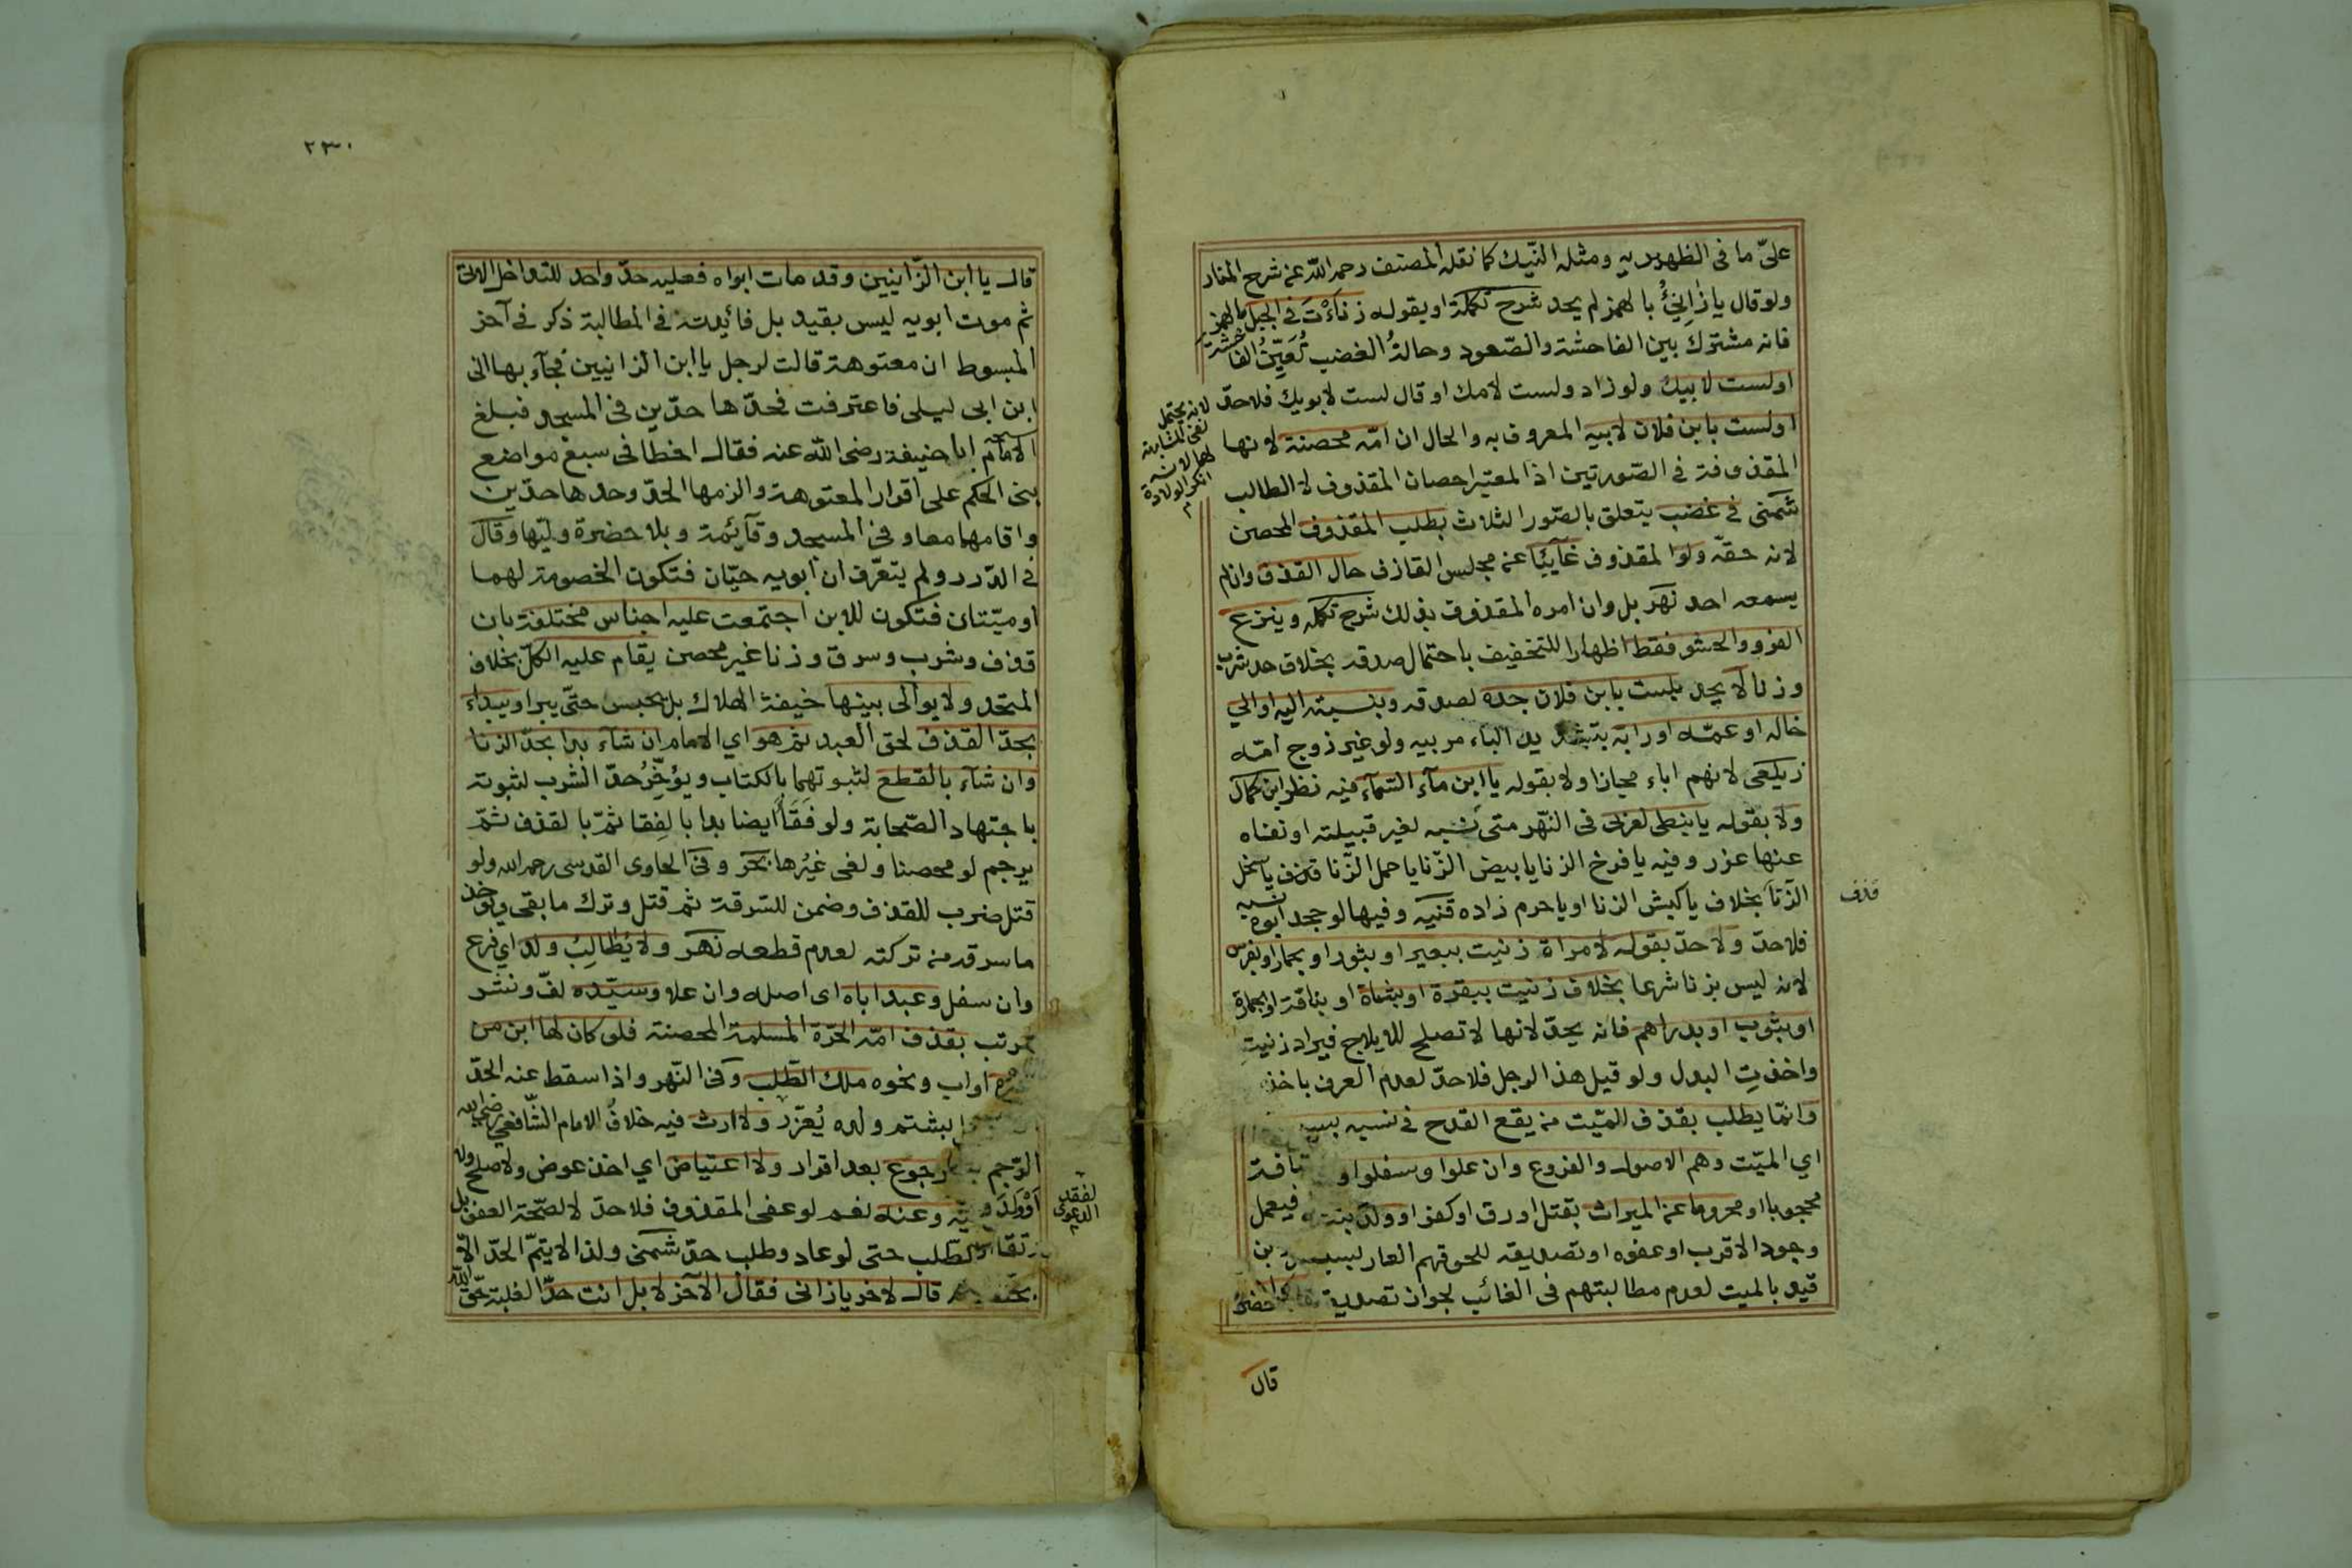 على ما فى الظهيرية ومثله النّيك كما نقله المصنف رحمه الله عن شرح المنار
ولو قال يا زانِئُ بالهمز لم يحد شرح تكملة او بقوله زنأتَ فى الجبل بالهمز
فانه مشترك بين الفاحشة والصّعود وحالةُ الغضب تُعَيِّنُ الفاحشة
او لست لابيك ولو زاد ولست لامك او قال لست لابويك فلا حدّ
لانه يحتمل
نفى المشابهة
لهما لانه
انكر الولادة
م
او لست بابن فلان لابيه المعروف به والحال ان امّه محصنة لانها
المقذوفة فى الصّورتين اذ المعتبر احصان المقذوف لا الطالب
شمّنى فى غضب يتعلق بالصّور الثلاث بطلب المقذوف المحصن
لانه حقّه ولو المقذوف غآئبًا عن مجلس القاذف حال القذف وان لم
يسمعه احد نهر بل وان امره المقذوف بذلك شرح تكملة وينزع
الفرو والحشو فقط اظهارا للتخفيف باحتمال صدقه بخلاف حد شرب
وزنا لا يحد بلست بابن فلان جده لصدقه وبنسبته اليه او الى
خاله او عمّه او رابّه بتشديد الباء مربيه ولو غير زوج امّه
زيلعى لانهم اباء مجازا ولا بقوله يا ابن مآء السّمآء فيه نظر ابن كمال
ولا بقوله يا نبطى لعربى فى النّهر متى نسبه لغير قبيلته او نفاه
عنها عزر وفيه يا فرخ الزنا يا بيض الزّنا يا حمل الزّنا قذف يا سخل
قذف
الزّنا بخلاف يا كبش الزنا او يا حرم زاده قنيه وفيها لو جحد ابوه نسبه
فلا حدّ ولا حدّ بقوله لامراة زنيت ببعير او بثور او بحمار او بفرس
لانه ليس بزنا شرعا بخلاف زنيت ببقرة او بشاة او بناقة او بحمارة
او بثوب او بدراهم فانه يحدّ لانها لا تصلح للايلاج فيراد زنيتِ
واخذتِ البدل ولو قيل هذا لرجل فلا حدّ لعدم العرف باخذ
وانمّا يطلب بقذف الميّت من يقع القدح فى نسبه بسبب
اي الميّت وهم الاصول والفروع وان علوا وسفلوا ولو
محجوبا او محروما عن الميراث بقتل او رق او كفر او ولد بنته فيعمل
وجود الاقرب او عفوه او تصديقه للحوقهم العار بسبب
قيد بالميت لعدم مطالبتهم فى الغائب لجواز تصديقه اذا حضر
قال
٢٣٠
قال يا ابن الزّانيين وقد مات ابواه فعليه حدّ واحد للتداخل الاتى
ثم موت ابويه ليس بقيد بل فائدته فى المطالبة ذكر فى آخر
المبسوط ان معتوهة قالت لرجل يا ابن الزانيين فجآء بها الى
ابن ابى ليلى فاعترفت فحدّها حدّين فى المسجد فبلغ
الامام ابا حنيفة رضى الله عنه فقال اخطا فى سبع مواضع
بنى الحكم على اقرار المعتوهة والزمها الحدّ وحدها حدّين
واقامهما معا وفى المسجد وقآئمة وبلا حضرة وليّها وقال
فى الدّرر ولم يتعرّف ان ابويه حيّان فتكون الخصومة لهما
او ميّتان فتكون للابن اجتمعت عليه اجناس مختلفة بان
قذف وشرب وسرق وزنا غير محصن يقام عليه الكلّ بخلاف
المتحد ولا يوالى بينها خيفة الهلاك بل يحبس حتّى يبرا ويبداء
بحدّ القذف لحق العبد ثم هو اي الامام ان شآء بدا بحدّ الزنا
وان شآء بالقطع لثبوتهما بالكتاب ويؤخِّرُ حدّ الشرب لثبوته
باجتهاد الصّحابة ولو فَقَأَ ايضا بدا بالفقا ثمّ بالقذف ثمّ
يرجم لو محصنا ولغى غيرُها بحر وفى الحاوى القدسى رحمه الله ولو
قتل ضرب للقذف وضمن للسّرقة ثم قتل وترك ما بقى ويؤخذ
ما سرقه من تركته لعدم قطعه نهر ولا يُطالِبُ ولد اي فرع
وان سفل وعبد اباه اى اصله وان علا وسيّده لفّ ونشر
مرتب بقذف امّه الحرّة المسلمة المحصنة فلو كان لها ابن من
غيره او اب ونحوه ملك الطّلب وفى النّهر واذا سقط عنه الحدّ
بشتم ولده يُعزّر ولا ارث فيه خلافُ الامام الشّافعي رضى الله
الرّجم رجوع بعد اقرار ولا اعتياض اي اخذ عوض ولا صلح ولا
وعنه نعم لو عفى المقذوف فلا حدّ لا لصحّة العفو بل
لفقد
الدعوى
م
الطّلب حتى لو عاد وطلب حدّ شمنى ولذا لا يتمّ الحدّ الّا
قال لاخر يا زانى فقال الآخر لا بل انت حدّا لغلبة حقّ الله